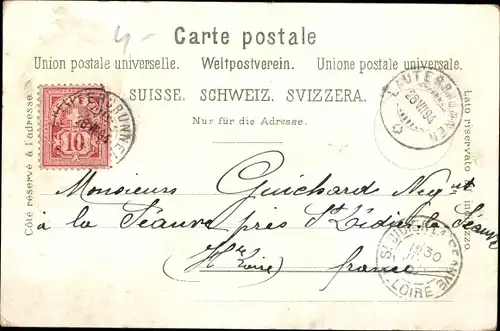 Carte postale
Union postale universelle. Weltpostverein. Unione postale universale.
SUISSE. SCHWEIZ. SVIZZERA.
Nur für die Adresse.
Côté réservé à l'adresse.
Lato riservato all'indirizzo
10
LAUTERBRUNNEN
28 VII 94
Monsieurs Guichard Neg.nt
à la Séauve près St Didier la Séauve
(Hte Loire) france
LOIRE